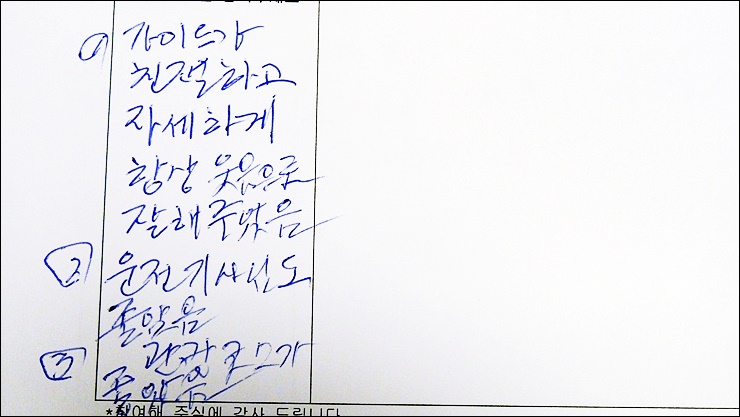 ① 가이드가
친절하고
자세하게
항상 웃음으로
잘해주었음
② 운전기사님도
좋았음
③ 관광코스가
좋았음
*참여해 주심에 감사 드립니다